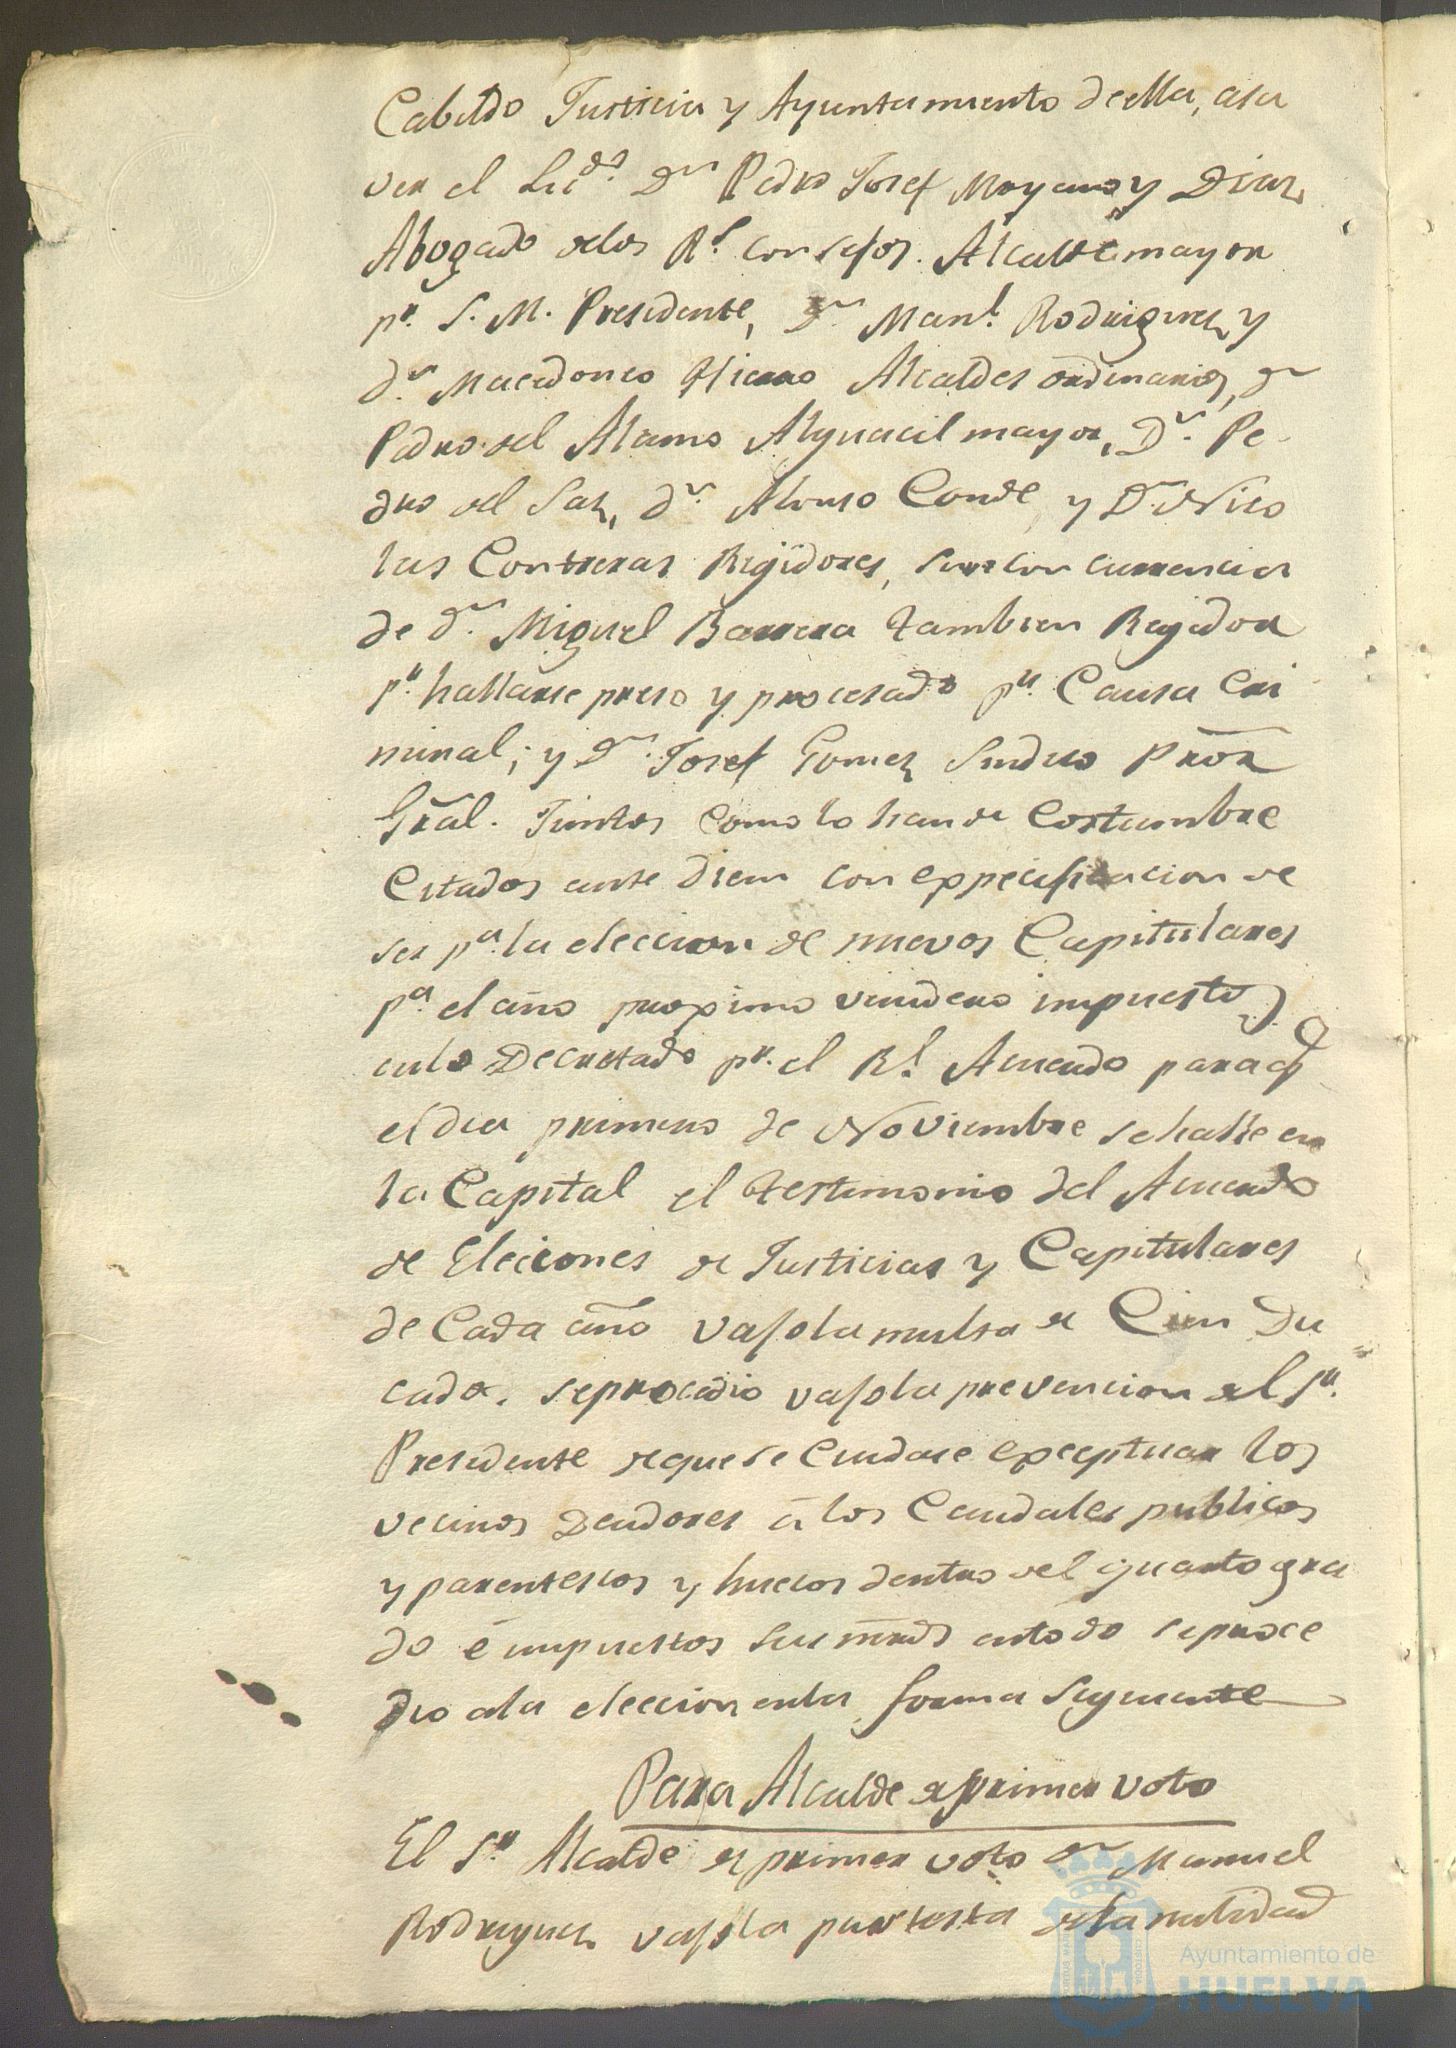 Cabildo Justicia y Ayuntamiento deella, asa
ver el Licdo. Dn Pedro Josef Moyano y Diaz
Abogado delos Rs. consejos. Alcalde mayor
pr. S. M. Presidente, Dn. Manl. Rodriguez y
dn. Macedonio Hierro Alcaldes ordinarios, dn
Pedro del Alamo Alguacil mayor, Dn. Pe-
dro del Saz, dn. Alonso Conde, y Dn. Nico
las Contreras Regidores, sin concurrencia
de dn. Miguel Barrera tambien Regidor
pr. hallarse preso y procesado pr. Causa Cri
minal; y Dn. Josef Gomez Sindico Pror
Gral. Juntos como lo han de Costumbre
Citados ante diem con expecificacion de
ser pa. la eleccion de nuevos Capitulares
pa. el año proximo venidero impuestos
enlo Decretado pr. el Rl. Acuerdo para q
el dia primero de Noviembre se halle en
la Capital el testimonio del Acuerdo
de Elecciones de Justicias y Capitulares
de Cada año vajo la multa de Cien Du
cados. se procedio vajo la prevencion del Sr.
Presidente de que se Cuidase exceptuar los
vecinos Deudores á los Caudales publicos
y parentescos y huecos dentro del quarto gra
do é impuestos sus mrds entodo se proce
dio ala eleccion enla forma siguiente
Para Alcalde de primer voto
El Sr. Alcalde de primer voto dn Manuel
Rodriguez vajo la protesta dela nulidad
Ayuntamiento de
HUELVA